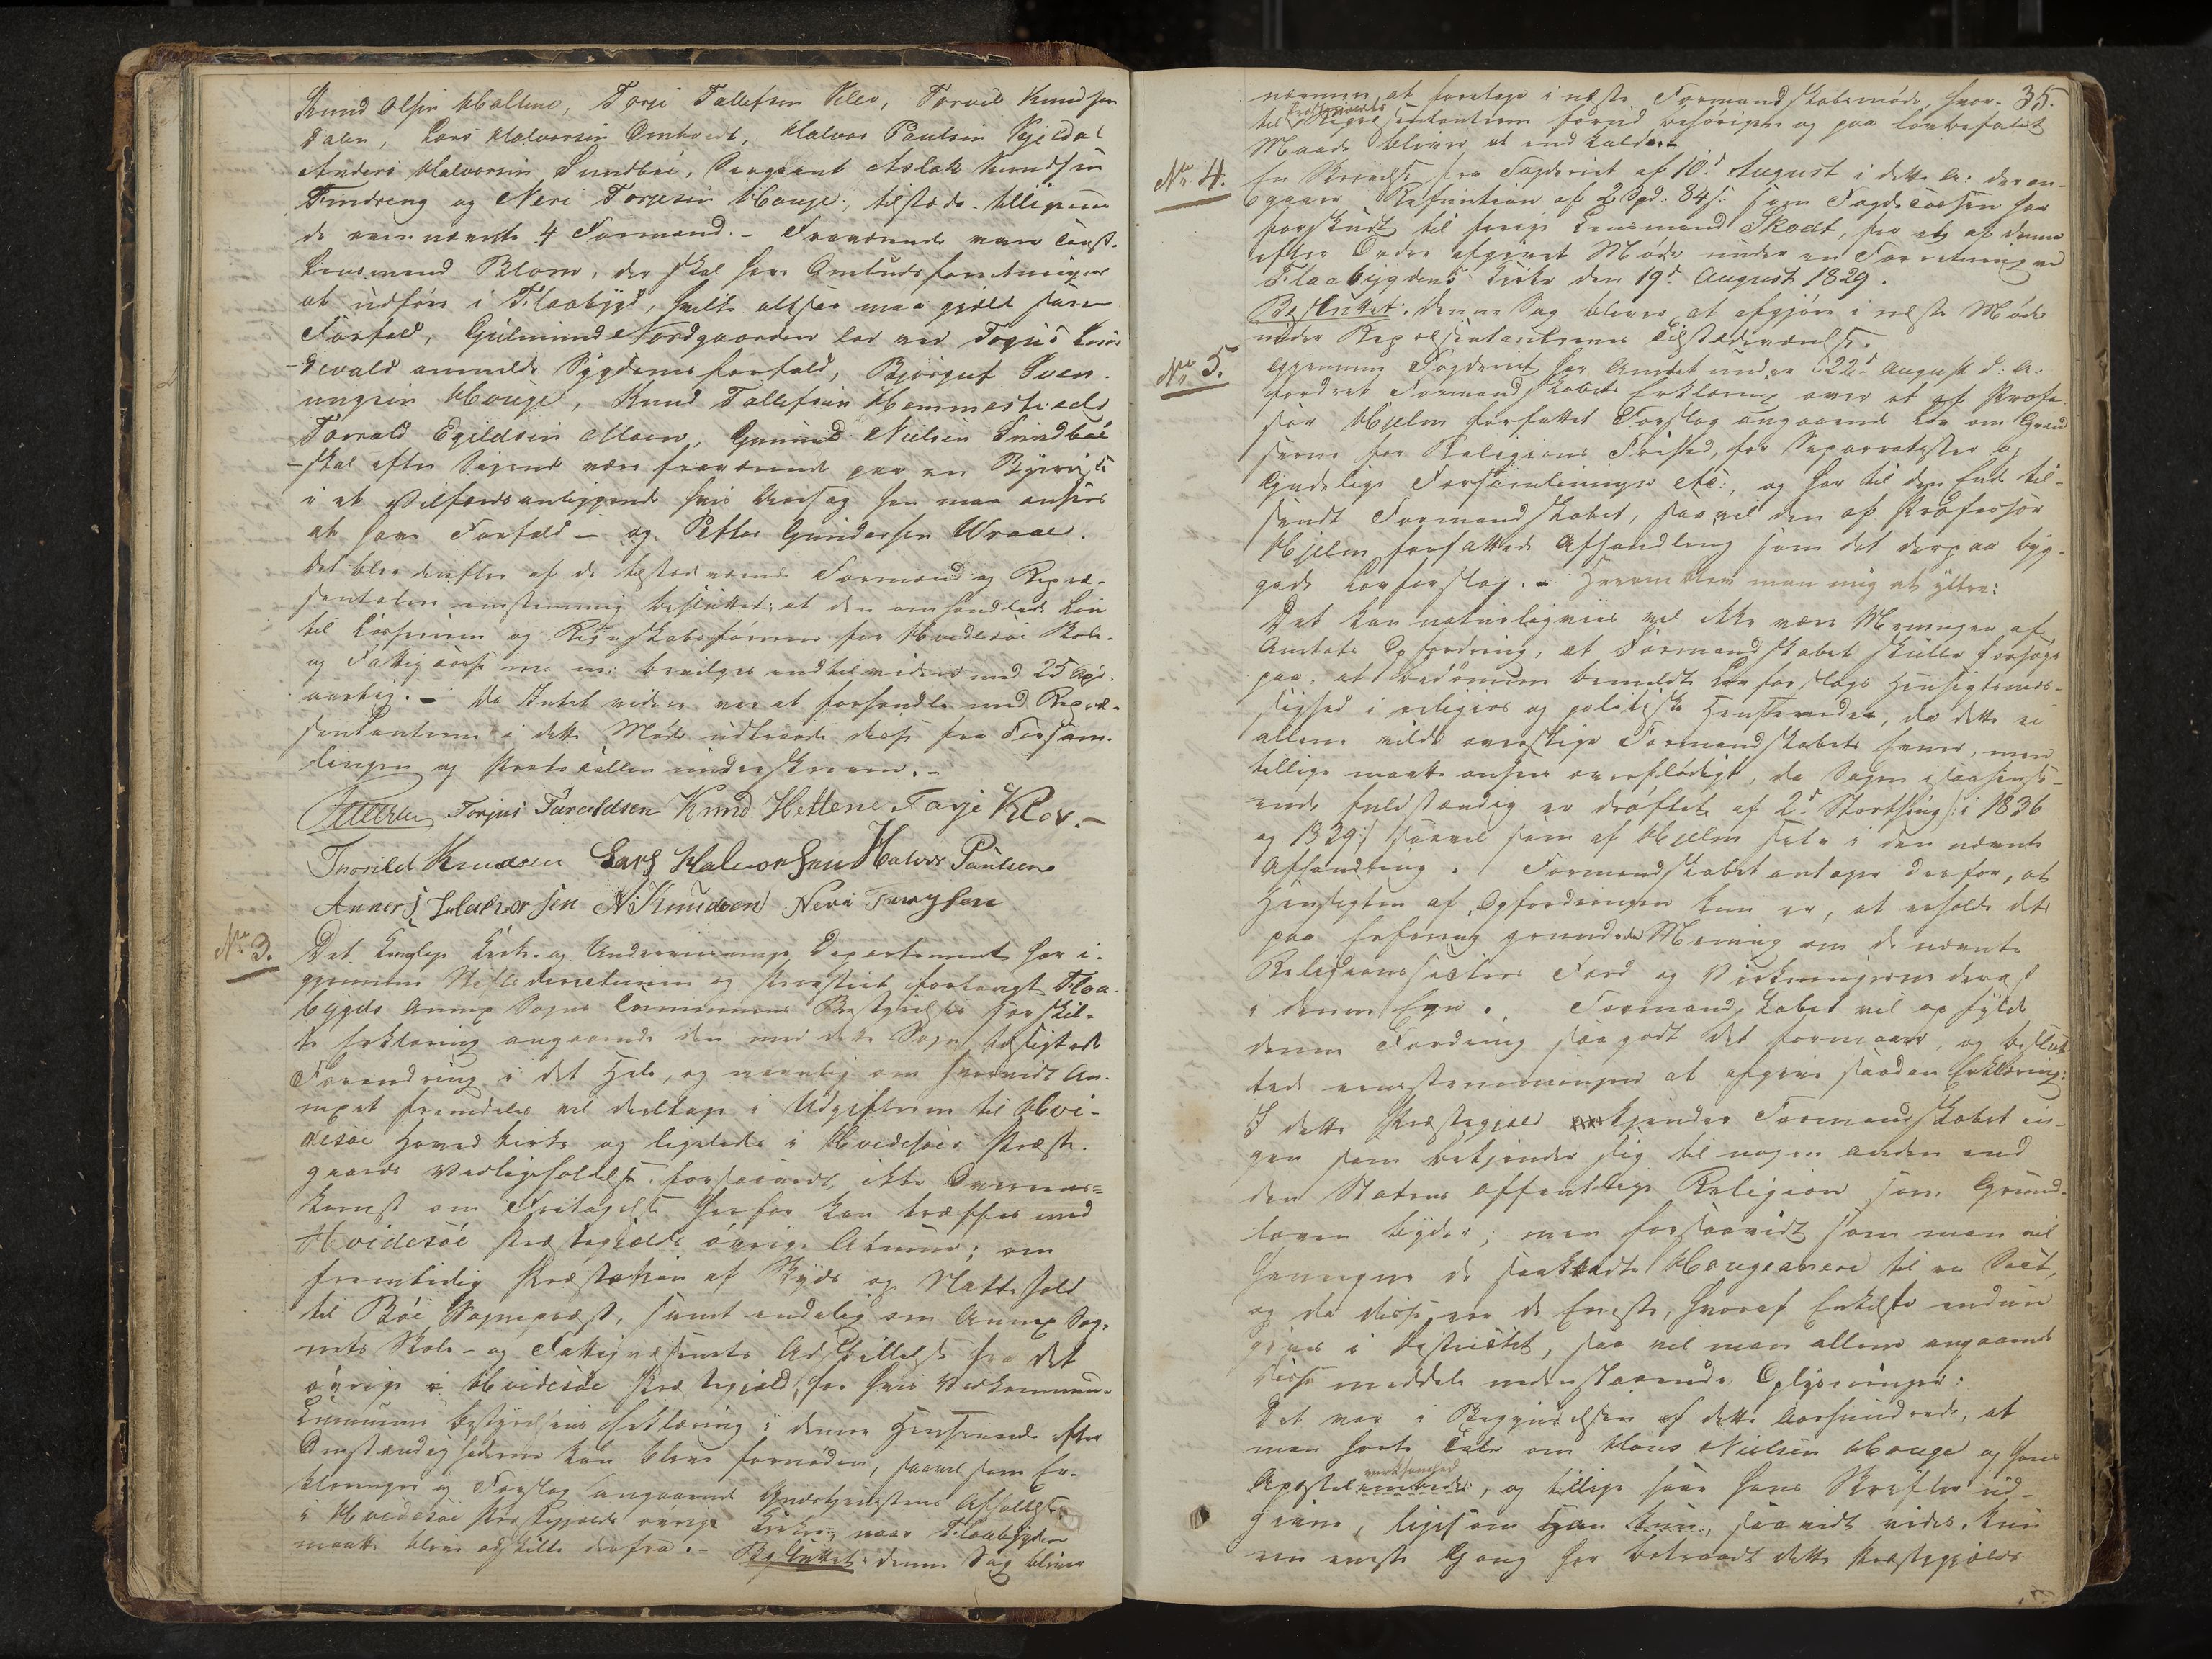 Knud Olsen Hellene, Torje Tallefsen Klev, Torvel Knudsen
Dalen, Lars Halvorsen Omtvedt, Halvor Paulsen Kjeldal
Anders Halvorsen Sundböe, Sergeant Aslak Knudsen
Tindreng og Neri Torjesen Houge, tilstæde tilligemed
de nævnte 4 Formænd. - Fraværende vare Const.
Lensmand Blom, der skal have Amtets forretninger
at udföre i Flaabygd, hvilket altsaa maa gjelde som
Forfald, Gulmund Nordgaarden lod ved Torjus
anmelde Sygdomsforfald, Björguf Sven-
ungsen Houge, Knud Tallefsen Hemmestvedt
Torvald Egildsen Moen, Gunund Nielsen Sundböe
- skal efter Sigende være fraværende paa en Byreise
i et Velfærdsanliggende hvis Aarsag han maa ansees
at have Forfald - og Petter Gundersen Wraae.
Det blev derefter af de tilstedeværende Formænd og Repræ-
sentanter eenstemmig besluttet, at den omhandlede Lön
til Casserer og Regnskabsförer for Hvidesöe Skole-
og Fattigcasse bevilges indtil videre med 25 Spd.
aarlig. - Da Intet videre var at forhandle med Repræ-
sentanterne i dette Møde udtraadte disse fra Forsam-
lingen og Protocollen underskreven. -
Torjus Taraldsen Knud Hellene Tarje Klev. -
Thorild Knudsen Lars Halvorsen Halvor Paulsen
Anners Halvorsen A Knudsen Neri Targesen
No 3. Det Kongelige Kirke- og Underviisnings Departement har i-
gjennem Stiftsdirectionen og Provstiet forlangt Flaa-
bygds Annex Sogns Communes Bestyrelses særskil-
te Erklæring angaaende den med dette Sogn besigtede
Forandring i det Hele, og navnlig om hvorvidt An-
nexet fremdeles vil deeltage i Udgifterne til Hvi-
desöe Hovedkirke og ligeledes i Hvidesöes Præste-
gaards Vedligeholdelse, forsaavidt ikke Overeens-
komst om Fritagelse herfor kan træffes med
Hvidesöe Præstegjelds övrige Almue; om
fremtidig Præstation af Skyds og Nattehold
til Böe Sognepræst, samt endelig om Annex Sog-
nets Skole- og Fattigvæsenets Adskillelse fra det
övrige i Hvidesöe Præstegjeld, for hvis Vedkommende
Communebestyrelsens Erklæring i denne Henseende efter
Omstændighederne kan blive fornöden, saavel som Er-
klæringer og Forslag angaaende Gudstjenestens Afholdelse
i Hvidesöe Præstegjelds övrige Kirker, naar Flaabygden
maatte blive adskilt derfra. - Besluttet: denne Sag bliver
35.
nærmere at foretage i næste Formandskabsmöde, hvor-
til Repræsentanterne forud beskrives og paa lovbefalet
Maade bliver at indkalde. -
No 4. En Skrivelse fra Fogderiet af 10d August i dette A: deran-
gaaende Refusion af 2 Spd. 84 s. som Fogdcassen har
forskudt til forrige Lensmand Skodt, for et af denne
efter Ordre afgivet Möde under en Forretning ved
Flaabygdens Kirke den 19d August 1829.
Besluttet: denne Sag bliver at afgjöre i næste Möde
under Repræsentanternes Tilstedeværelse.
No 5. Gjennem Fogderiet har Amtet under 22d August d. A.
fordret Formandskabets Erklæring over et af Profes-
sor Hjelm forfattet Forslag angaaende Lov om Grænd-
serne for Religions Frihed, for Separatister og
Gudelige Forsamlinger etc:, og har til den Ende til-
sendt Formandskabet, saavel den af Professor
Hjelm forfattede Afhandling som det derpaa byg-
gede Lovforslag. - Herom blev man enig at yttre:
Det kan naturligviis vel ikke være Meningen af
Amtets Opfordring, at Formandskabet skulle forsöge
paa, at bedömme bemeldte Lovforslags Hensigtsmæs-
sighed i religiös og politiske Henseender, da dette ei
allene vilde overstige Formandskabets Evner, men
tillige maatte ansees overflödigt, da Sagen i saahense-
ende fuldstændig er dröftet af 2de Storthing /: i 1836
og 1839 :/ saavel som af Hjelm selv i den nævnte
Afhandling. Formandskabet antager derfor, at
Hensigten af Opfordringen kun er, at erholde dets
paa Erfaring grundede Mening om de nævnte
Religionssecters Færd og Virkningerne deraf
i denne Egn. Formandskabet vil opfylde
denne Fordring saa godt det formaaer, og beslut-
tede eenstemmigen at afgive saadan Erklæring:
I dette Præstegjeld kjender Formandskabet in-
gen som bekjender sig til nogen anden end
den Statens offentlige Religion som Grund-
loven byder; men forsaavidt som man vil
henregne de saakaldte Haugeanere til en Sect,
og da disse ere de Eneste, hvoraf Enkelte endnu
gives i Districtet, saa vil man allene angaaende
disse meddele nedenstaaende Oplysninger:
Det var i Begyndelsen af dette Aarhundrede, at
man hörte Tale om Hans Nielsen Houge og hans
Apostel virksomhed, og tillige saae hans Skrifter ud-
givne, ligesom han kun, saavidt vides, kun
een eneste Gang har betraadt dette Præstegjelds